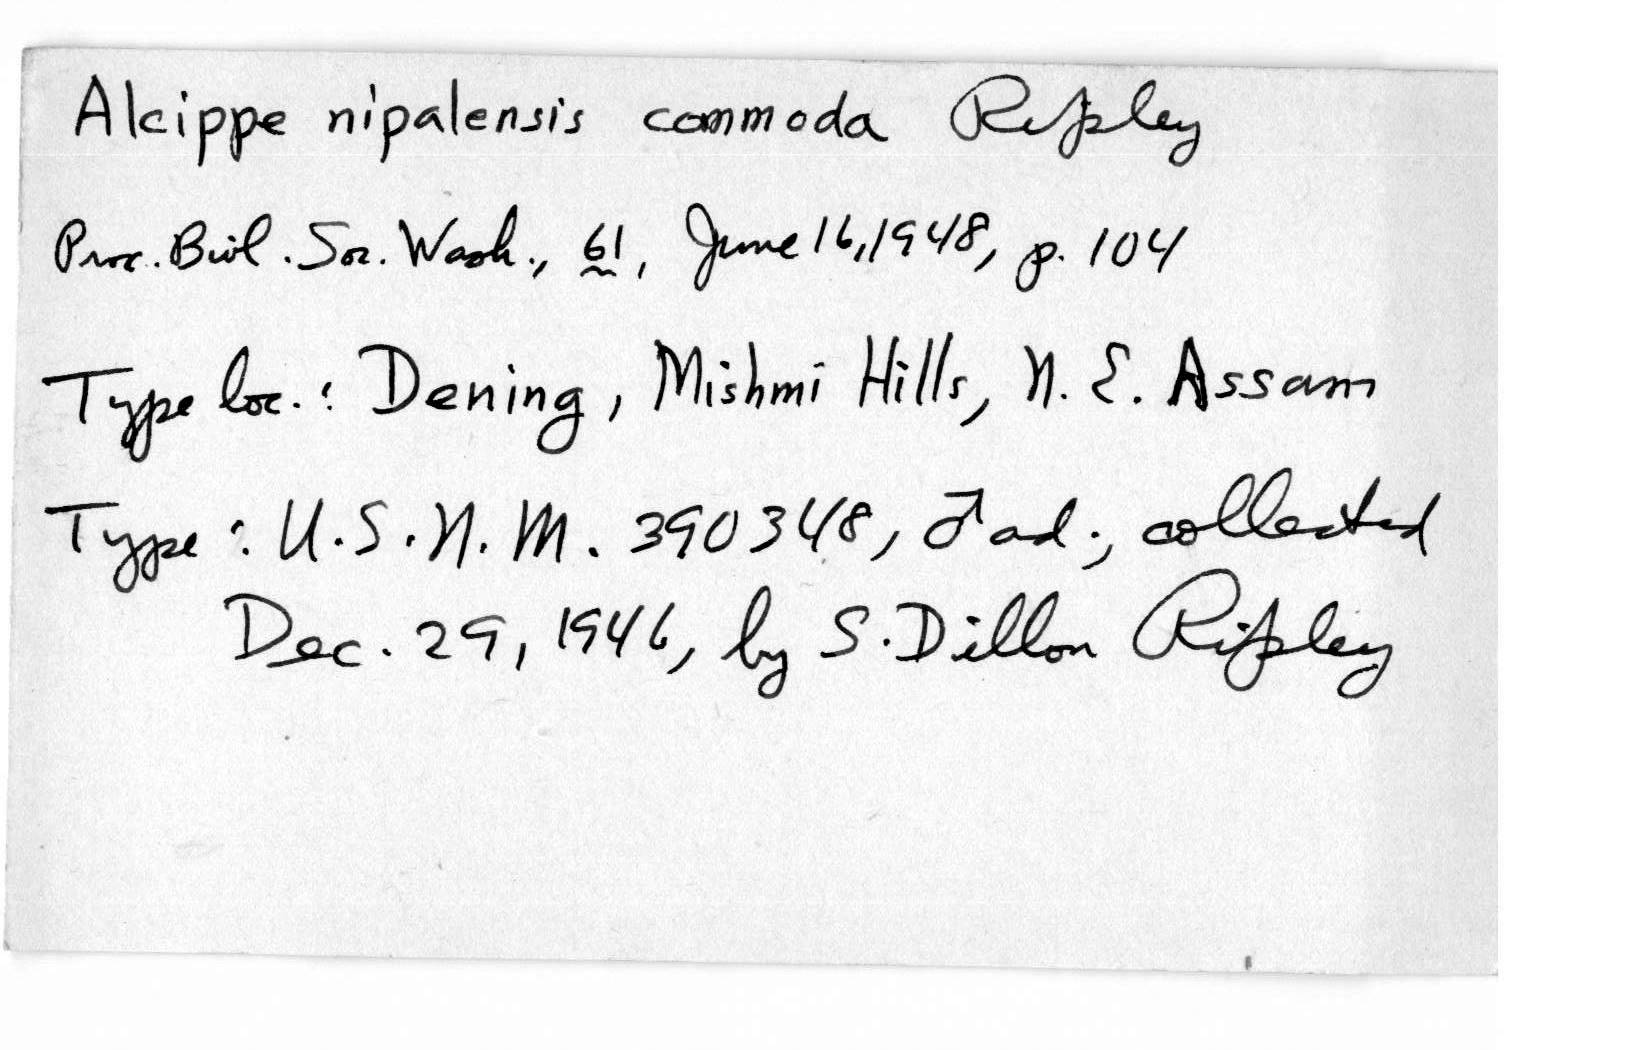 Alcippe nipalensis commoda Ripley
Proc. Biol. Soc. Wash., 61, June 16, 1948, p. 104
Type loc.: Dening, Mishmi Hills, N. E. Assam
Type: U.S.N.M. 390348, ♂ ad., collected
Dec. 29, 1946, by S. Dillon Ripley